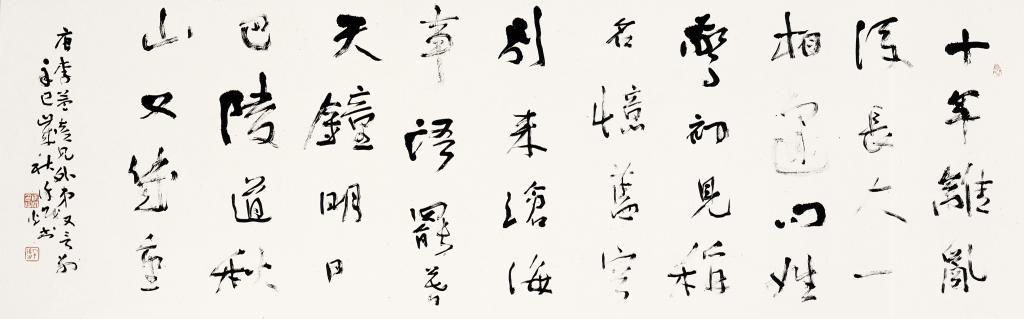 十年離亂
後長大一
相逢問姓
驚初見稱
名憶舊容
別來滄海
事語罷暮
天鐘明日
巴陵道秋
山又幾重
唐李益喜見外弟又言別
辛巳歲秋 書